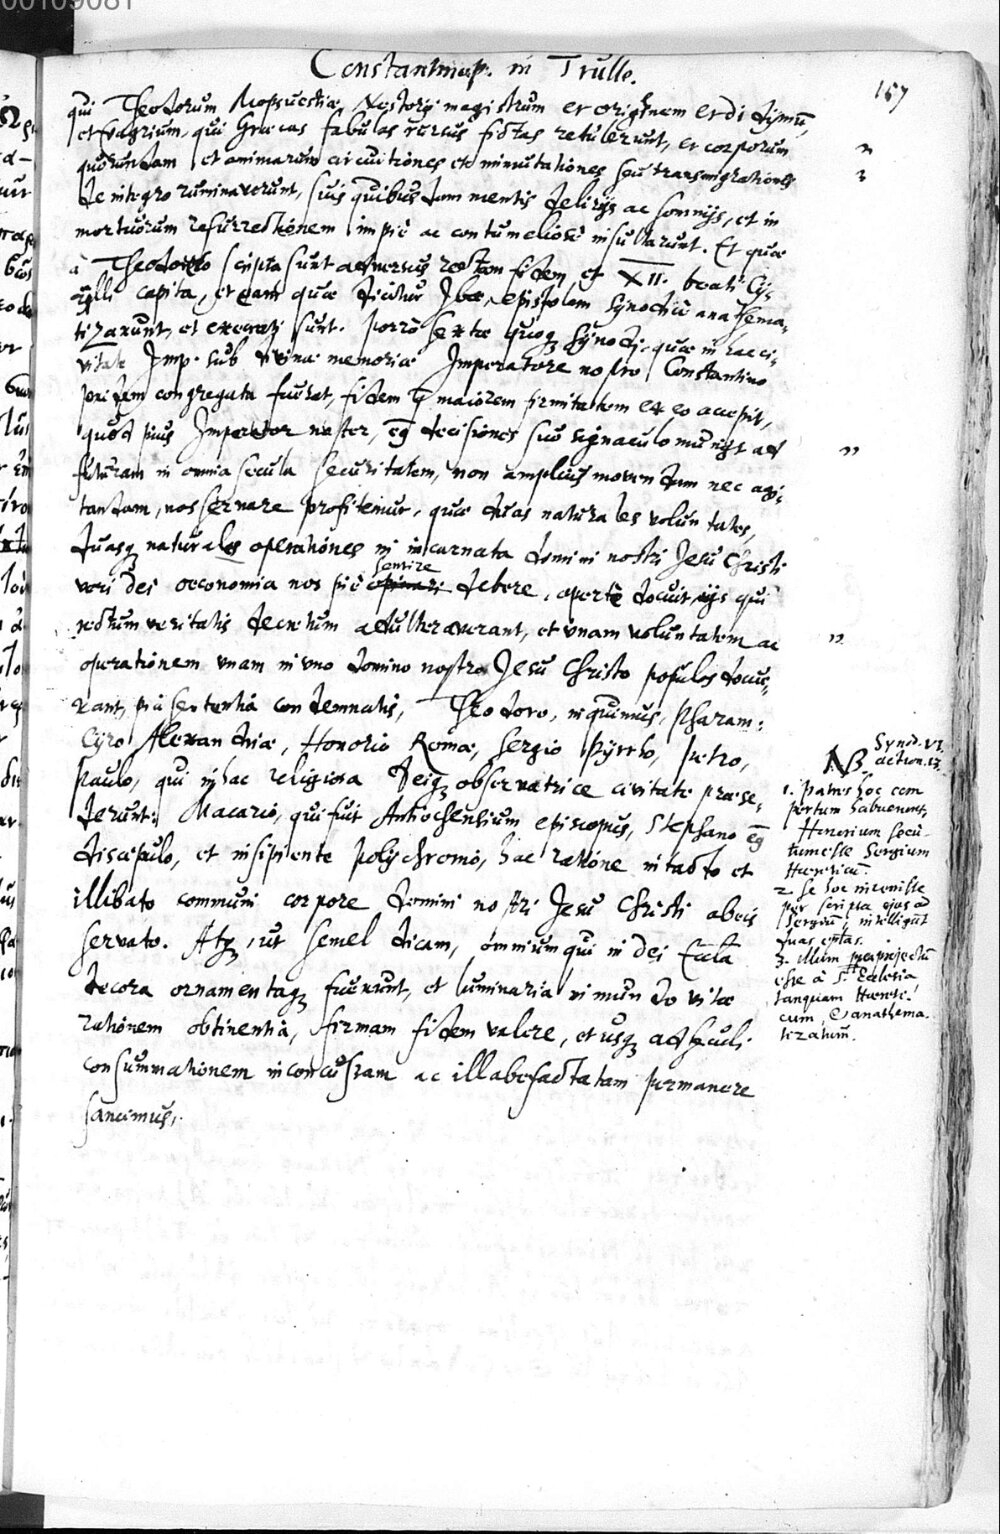 00109081
Constantinop. in Trullo.
157
qui Theodorum Mopsuestiæ, Nestorij magistrum et Origenem et didÿmũ,
et Evagrium, qui Græcas fabulas rursus fictas retulerunt, et corporum
quorundam et animarum circuitiones et minutationes seu transmigrationes
de integro ruminaverunt, suis quibusdam mentis delirijs ac somnijs, et in
mortuorum resurrectionem impiè ac contumeliosè insultarunt. Et quæ
à Theodorito scripta sunt adversus rectam fidem et XII. beati Cÿ-
rilli capita, et eam quæ dicitur Ibæ, epistolam synodicè anathema-
tizarunt, et execrati sunt. Porrò sextæ quoq synodi, quæ in hac ci-
vitate Imp. sub divinæ memoriæ Imperatore nostro Constantino
pridem congregata fuerat, fidem q maiorem firmitatem ex eo accepit,
quod pius Imperator noster, eg decisiones suo signaculo munijt ad
futuram in omnia secula securitatem, non amplius movendam nec agi-
tandam, nos servare profitemur, quæ duas naturales voluntates,
duasq naturales operationes in incarnata domini nostri Jesu Christi
sentire
veri dei œconomia nos piè opinari debere, apertè docuit, ijs qui
rectum veritatis decretum adulteraverant, et unam voluntatem ac
operationem unam in uno domino nostro Jesu Christo populos docue-
rant, pia sententia condemnatis, Theodoro, inquimus, Pharam:
Cÿro Alexandriæ, Honorio Romæ, Sergio Pÿrrho, Petro,
Paulo, qui in hac religiosa deiq observatrice civitate præse-
derunt: Macario, qui fuit Antiochensium episcopus, Stephano eg
discipulo, et insipiente Polÿchromio, hac ratione intacto et
illibato communi corpore domini nostri Jesu Christi ab eis
servato. Atq, ut semel dicam, omnium qui in dei Eccla
decora ornamentaq fuerunt, et luminaria in mundo vitæ
rationem obtinentia, firmam fidem valere, et usq ad seculi
consummationem inconcussam ac illabefactatam permanere
sancimus,
Synod. VI.
NB. action. 13.
1. Patres hoc com
pertum habuerunt,
Honorium secu-
tum esse Sergium
Hæreticũ.
2. Se hoc invenisse
per scripta ejus ad
Sergium; intelligunt
duas eptas.
3. illum projectũ
esse à S. Ecclesia
tanquam Hæreti-
cum, & anathema-
tizatum.